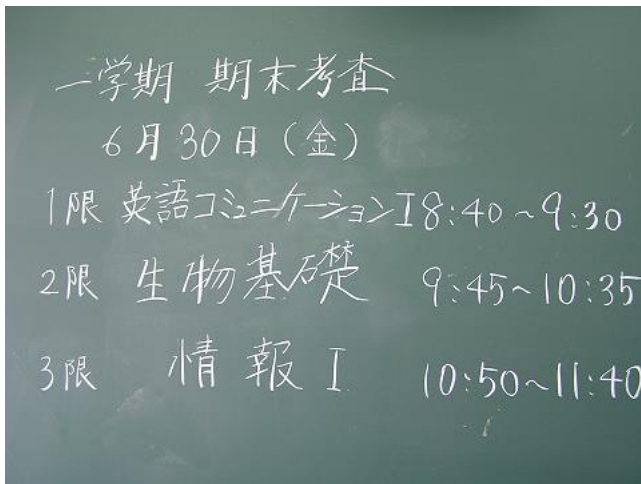 一学期 期末考査
6月30日(金)
1限 英語コミュニケーションI 8:40~9:30
2限 生物基礎 9:45~10:35
3限 情報I 10:50~11:40